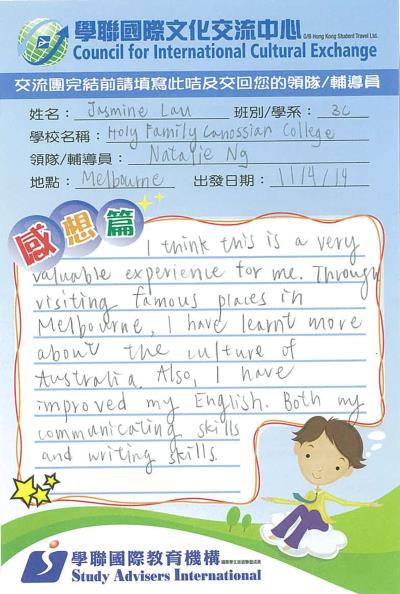 學聯國際文化交流中心 O/B Hong Kong Student Travel Ltd.
Council for International Cultural Exchange
交流團完結前請填寫此咭及交回您的領隊/輔導員
姓名： Jasmine Lau 班別/學系： 3C
學校名稱： Holy Family Canossian College
領隊/輔導員： Natalie Ng
地點： Melbourne 出發日期： 11/4/14
感想篇
I think this is a very
valuable experience for me. Through
visiting famous places in
Melbourne, I have learnt more
about the culture of
Australia. Also, I have
improved my English. Both my
communicating skills
and writing skills.
學聯國際教育機構
Study Advisers International